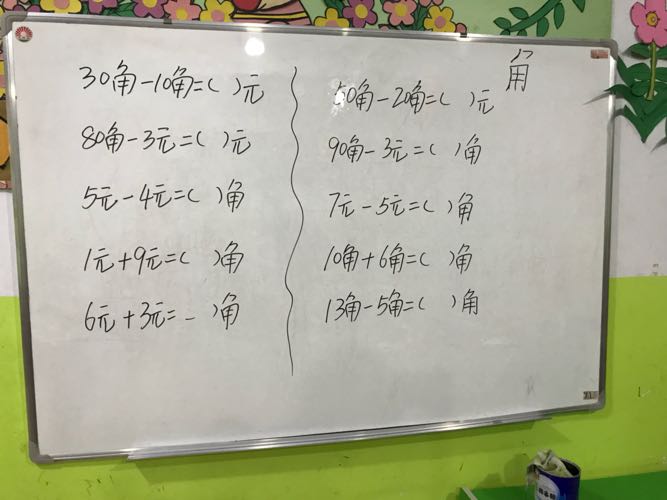 30角-10角=( )元
80角-3元=( )元
5元-4元=( )角
1元+9元=( )角
6元+3元= _ )角
角
50角-20角=( )元
90角-3元=( )角
7元-5元=( )角
10角+6角=( )角
13角-5角=( )角